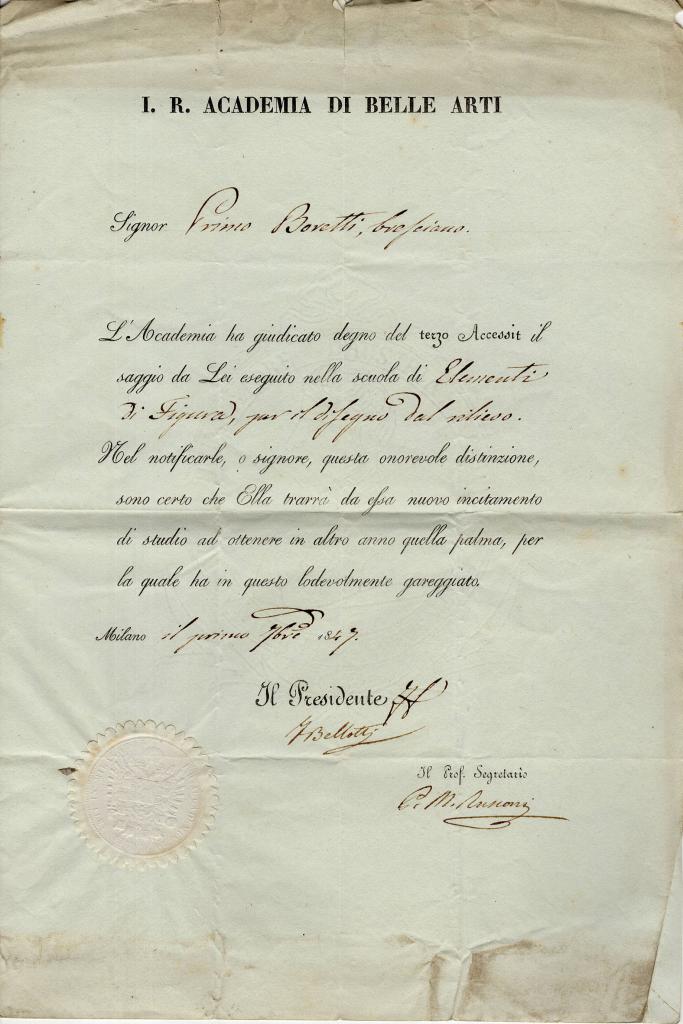 I. R. ACADEMIA DI BELLE ARTI
Signor Primo Boretti, bresciano.
L'Academia ha giudicato degno del terzo Accessit il
saggio da Lei eseguito nella scuola di Elementi
di Figura, per il disegno dal rilievo.
Nel notificarle, o signore, questa onorevole distinzione,
sono certo che Ella trarrà da essa nuovo incitamento
di studio ad ottenere in altro anno quella palma, per
la quale ha in questo lodevolmente gareggiato.
Milano il primo 7bre 1847.
Il Presidente
Bellotti
Il Prof. Segretario